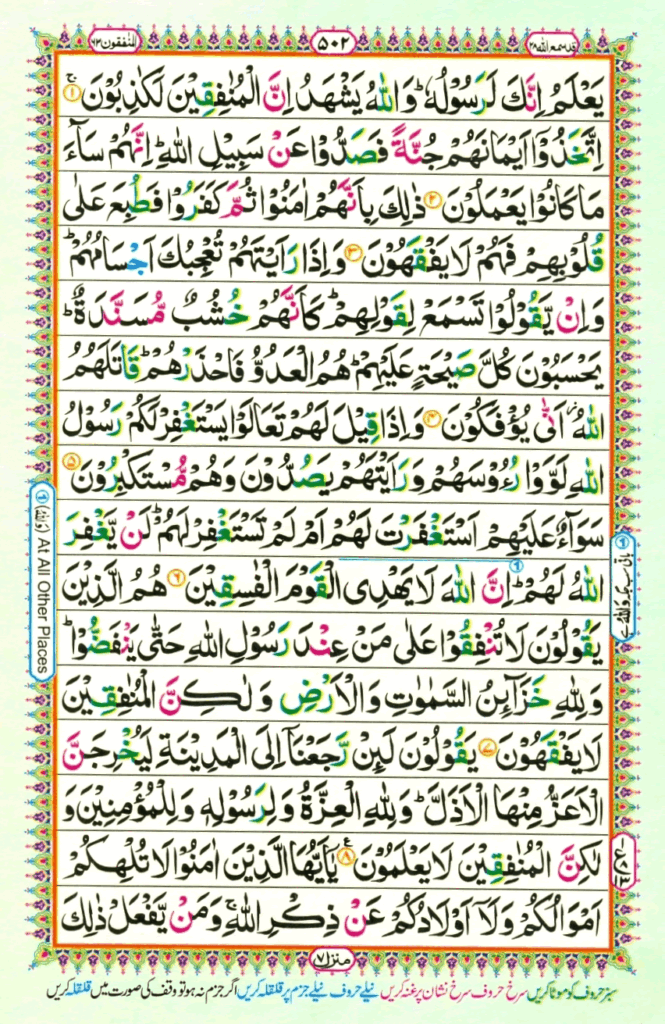 قد سمع الله ٢٨
٥٠٢
المنفقون ٦٣
يَعْلَمُ اِنَّكَ لَرَسُوْلُهٗ ؕ وَاللّٰهُ يَشْهَدُ اِنَّ الْمُنٰفِقِيْنَ لَكٰذِبُوْنَ ۚ ۱
اِتَّخَذُوْۤا اَيْمَانَهُمْ جُنَّةً فَصَدُّوْا عَنْ سَبِيْلِ اللّٰهِ ؕ اِنَّهُمْ سَآءَ
مَا كَانُوْا يَعْمَلُوْنَ ۲ ذٰلِكَ بِاَنَّهُمْ اٰمَنُوْا ثُمَّ كَفَرُوْا فَطُبِعَ عَلٰى
قُلُوْبِهِمْ فَهُمْ لَا يَفْقَهُوْنَ ۳ وَاِذَا رَاَيْتَهُمْ تُعْجِبُكَ اَجْسَامُهُمْ ؕ
وَاِنْ يَّقُوْلُوْا تَسْمَعْ لِقَوْلِهِمْ ؕ كَاَنَّهُمْ خُشُبٌ مُّسَنَّدَةٌ ؕ
يَحْسَبُوْنَ كُلَّ صَيْحَةٍ عَلَيْهِمْ ؕ هُمُ الْعَدُوُّ فَاحْذَرْهُمْ ؕ قَاتَلَهُمُ
اللّٰهُ ؗ اَنّٰى يُؤْفَكُوْنَ ۴ وَاِذَا قِيْلَ لَهُمْ تَعَالَوْا يَسْتَغْفِرْ لَكُمْ رَسُوْلُ
اللّٰهِ لَوَّوْا رُءُوْسَهُمْ وَرَاَيْتَهُمْ يَصُدُّوْنَ وَهُمْ مُّسْتَكْبِرُوْنَ ۵
سَوَآءٌ عَلَيْهِمْ اَسْتَغْفَرْتَ لَهُمْ اَمْ لَمْ تَسْتَغْفِرْ لَهُمْ ؕ لَنْ يَّغْفِرَ
اللّٰهُ لَهُمْ ؕ اِنَّ اللّٰهَ لَا يَهْدِى الْقَوْمَ الْفٰسِقِيْنَ ۶ هُمُ الَّذِيْنَ
يَقُوْلُوْنَ لَا تُنْفِقُوْا عَلٰى مَنْ عِنْدَ رَسُوْلِ اللّٰهِ حَتّٰى يَنْفَضُّوْا ؕ
وَلِلّٰهِ خَزَآئِنُ السَّمٰوٰتِ وَالْاَرْضِ وَلٰكِنَّ الْمُنٰفِقِيْنَ
لَا يَفْقَهُوْنَ ۷ يَقُوْلُوْنَ لَئِنْ رَّجَعْنَاۤ اِلَى الْمَدِيْنَةِ لَيُخْرِجَنَّ
الْاَعَزُّ مِنْهَا الْاَذَلَّ ؕ وَلِلّٰهِ الْعِزَّةُ وَلِرَسُوْلِهٖ وَلِلْمُؤْمِنِيْنَ وَ
لٰكِنَّ الْمُنٰفِقِيْنَ لَا يَعْلَمُوْنَ ۸ يٰۤاَيُّهَا الَّذِيْنَ اٰمَنُوْا لَا تُلْهِكُمْ
اَمْوَالُكُمْ وَلَاۤ اَوْلَادُكُمْ عَنْ ذِكْرِ اللّٰهِ ۚ وَمَنْ يَّفْعَلْ ذٰلِكَ
منزل ۷
سبز حروف کو موٹا کریں سرخ حروف سرخ نشان پر غنہ کریں نیلے حروف نیلے جزم پر قلقلہ کریں اگر جزم نہ ہو تو وقف کی صورت میں قلقلہ کریں
At All Other Places